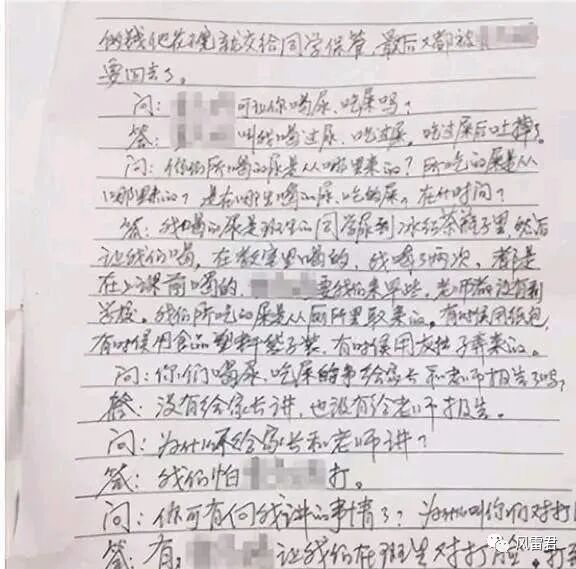 的钱他在不完就交给同学保管，最后又都被
要回去了。
问：可让你喝尿、吃屎吗？
答：叫我喝过尿、吃过屎，吃过屎后吐掉了。
问：你们所喝的尿是从哪里来的？所吃的屎是从
哪里来的？是在哪里喝的尿、吃的屎，在什时间？
答：我喝的尿是班里的同学尿到冰红茶瓶子里，然后
让我们喝，在教室里喝的，我喝了两次，都是
在上课前喝的，要我们来早些，老师都没有到
学校。我们所吃的屎是从厕所里取来的，有时候用纸包，
有时候用食品塑料袋子装，有时候用棍子弄来的。
问：你们喝尿、吃屎的事给家长和老师报告了吗？
答：没有给家长讲，也没有给老师报告。
问：为什么不给家长和老师讲？
答：我们怕打。
问：你可有何我讲的事情了？为什么叫你们对打
答：有，让我们在班里对打脸，打
风雷君